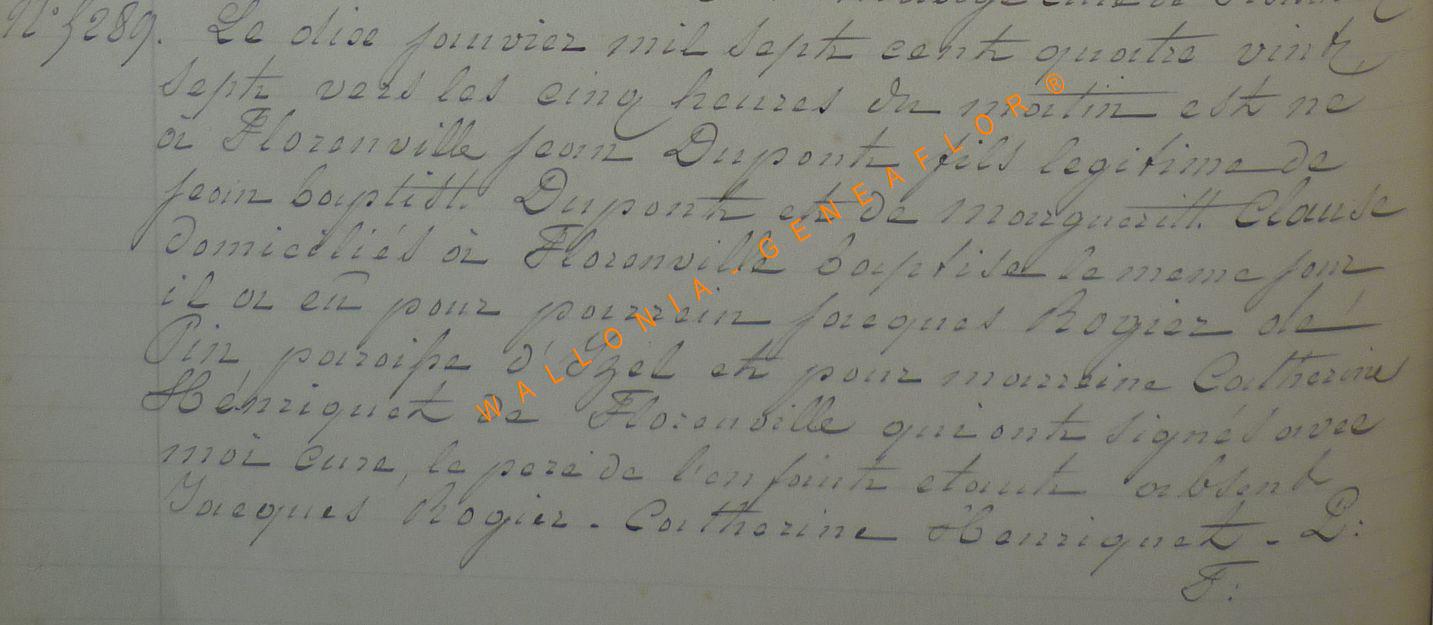 N° 5289. Le dix janvier mil sept cent quatre vint
sept vers les cinq heures du matin est né
à Florenville jean Dupont fils legitime de
jean baptist. Dupont et de margueritt. Clause
domiciliés à Florenville baptise le meme jour
il a eu pour parrein jacques Rogier de
Pin, paroisse d'Izel et pour marreine Catherine
Hénriquet de Florenville qui ont signés avec
moi curé, le pere de l'enfant etant absent
Jacques Rogier - Catherine Henriquet - D:
F:
WALLONIA - GENEAFLOR ®